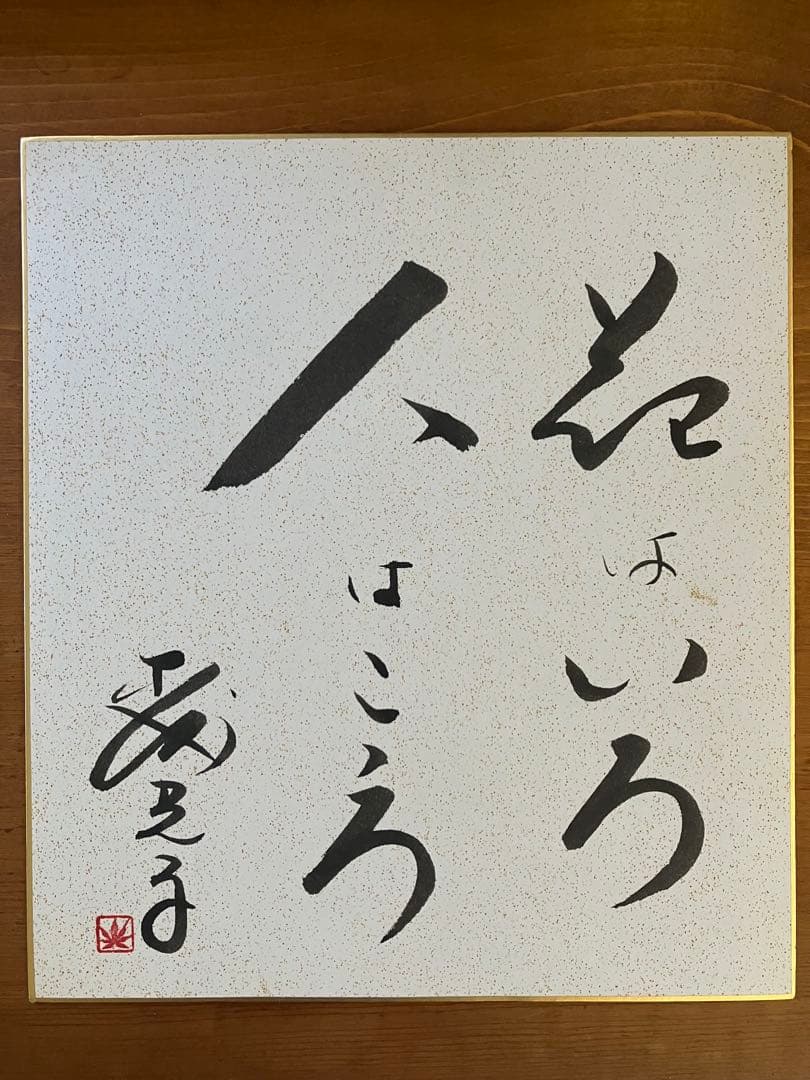 花はいろ
人はこころ